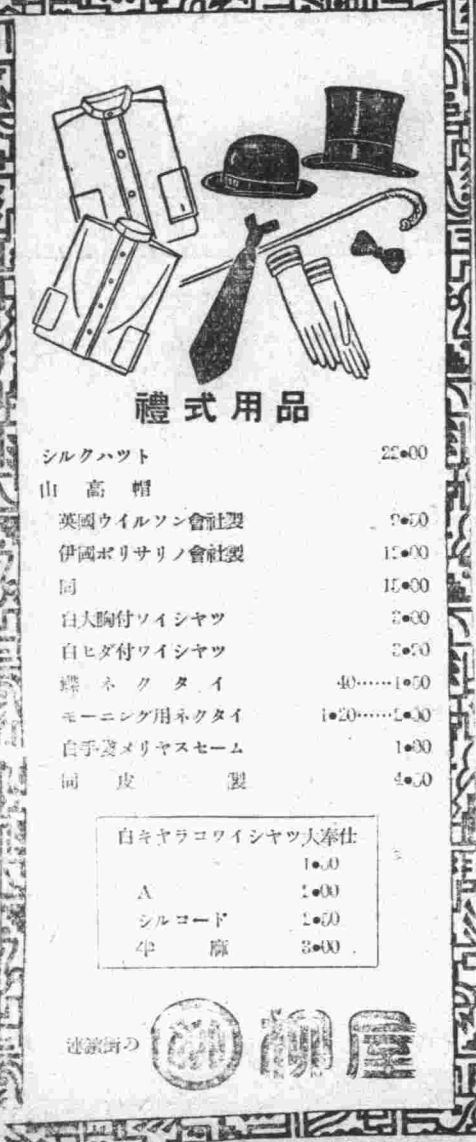 禮式用品
シルクハツト 22•00
山高帽
英國ウイルソン會社製
伊國ボリサリノ會社製 1•00
同 15•00
白大胸付ワイシヤツ •00
白ヒダ付ワイシヤツ
蝶ネクタイ 40……1•50
モーニング用ネクタイ 1•20……•00
白手袋メリヤスセーム 1•00
同 皮製 4•50
白キヤラコワイシヤツ大奉仕
1•50
A •00
シルコード •50
半麻 3•00
連鎖街の 柳 柳屋